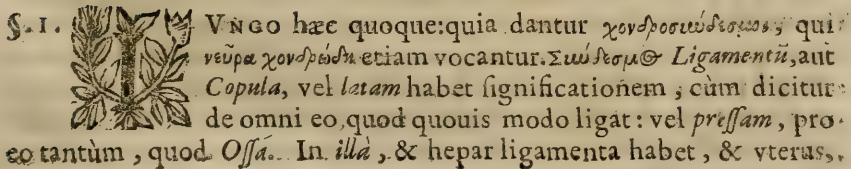 §. I. IVNGO hæc quoque: quia dantur χονδροσυνδεσμοι, qui
νεῦρα χονδρώδη etiam vocantur. Συνδεσμος Ligamentũ, aut
Copula, vel latam habet ſignificationem, cùm dicitur
de omni eo, quod quouis modo ligat: vel preſſam, pro
eo tantùm, quod Oſſa. In illà, & hepar ligamenta habet, & vterus,